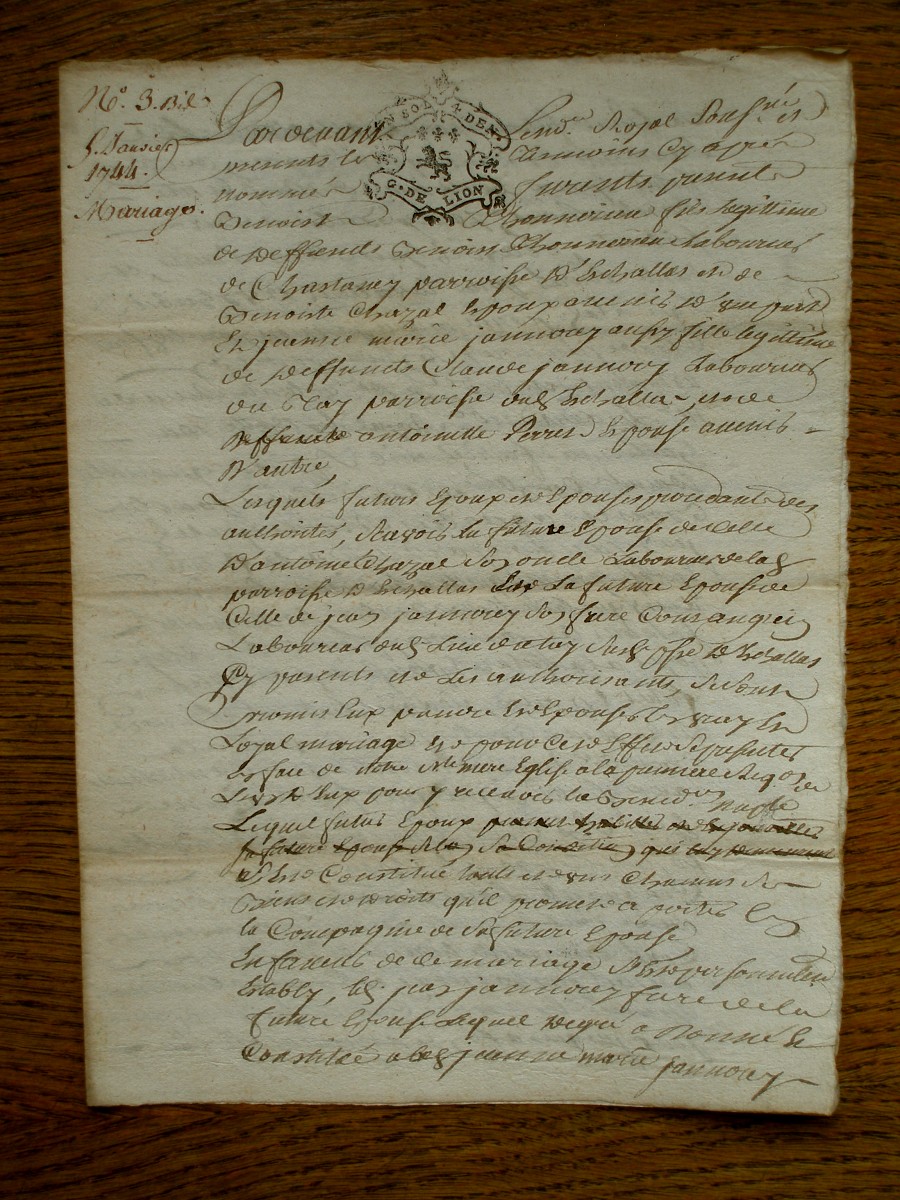 N.º 3. Bis
5. Janvier
1744.
Mariage.
EN SOL 4 DEN.
G. DE LION
Pardevant le No.re Royal Sous.né et
temoins cy après
nommés furents presents
Benoist Thonnerieu fils legittime
de deffuncts Benoist Thonnerieu Laboureur
de Chastaney parroisse d'Echallas et de
Benoiste Chazal Epoux avenir d'une part
Et jeanne marie jannorey aussy fille legittime
de deffuncts Claude jannorey Laboureur
du parroisse dud. Echallas et de
deffuncte antoinette Perret Epouse avenir
D'autre,
Lesquels futurs Epoux et Epouse procedants des
authorités, scavoir La future Epouse de celle
D'antoine Chazal Son oncle Laboureur de lad.
parroisse D'Echallas La future Epouse de
Celle de jean jannorey Son frere Consanguin
Laboureur dud. Lieu Sud. psse D'Echallas
Cy presents et Les authorisants, Se Sont
promis Eux prendre et Epouser En vray et
Loyal mariage et pour ce Effect Se presenter
En face de notre Ste mere Eglise a la premiere Requon de
L'un D'Eux pour y recevoir la Bened.on nuptle
Lequel futur Epoux
la future Epouse Selon Sa Condition qui
S'Est Constitué touts et uns Chacuns Ses
Biens et droits qu'il promet a porter En
la Compagnie de Sa future Epouse
En faveur de ce mariage S'Est personnellem.t
Etably, led. jean jannorey frere de la
future Epouse Lequel de gré a Donné Et
Constitué a lad. jeanne marie jannorey